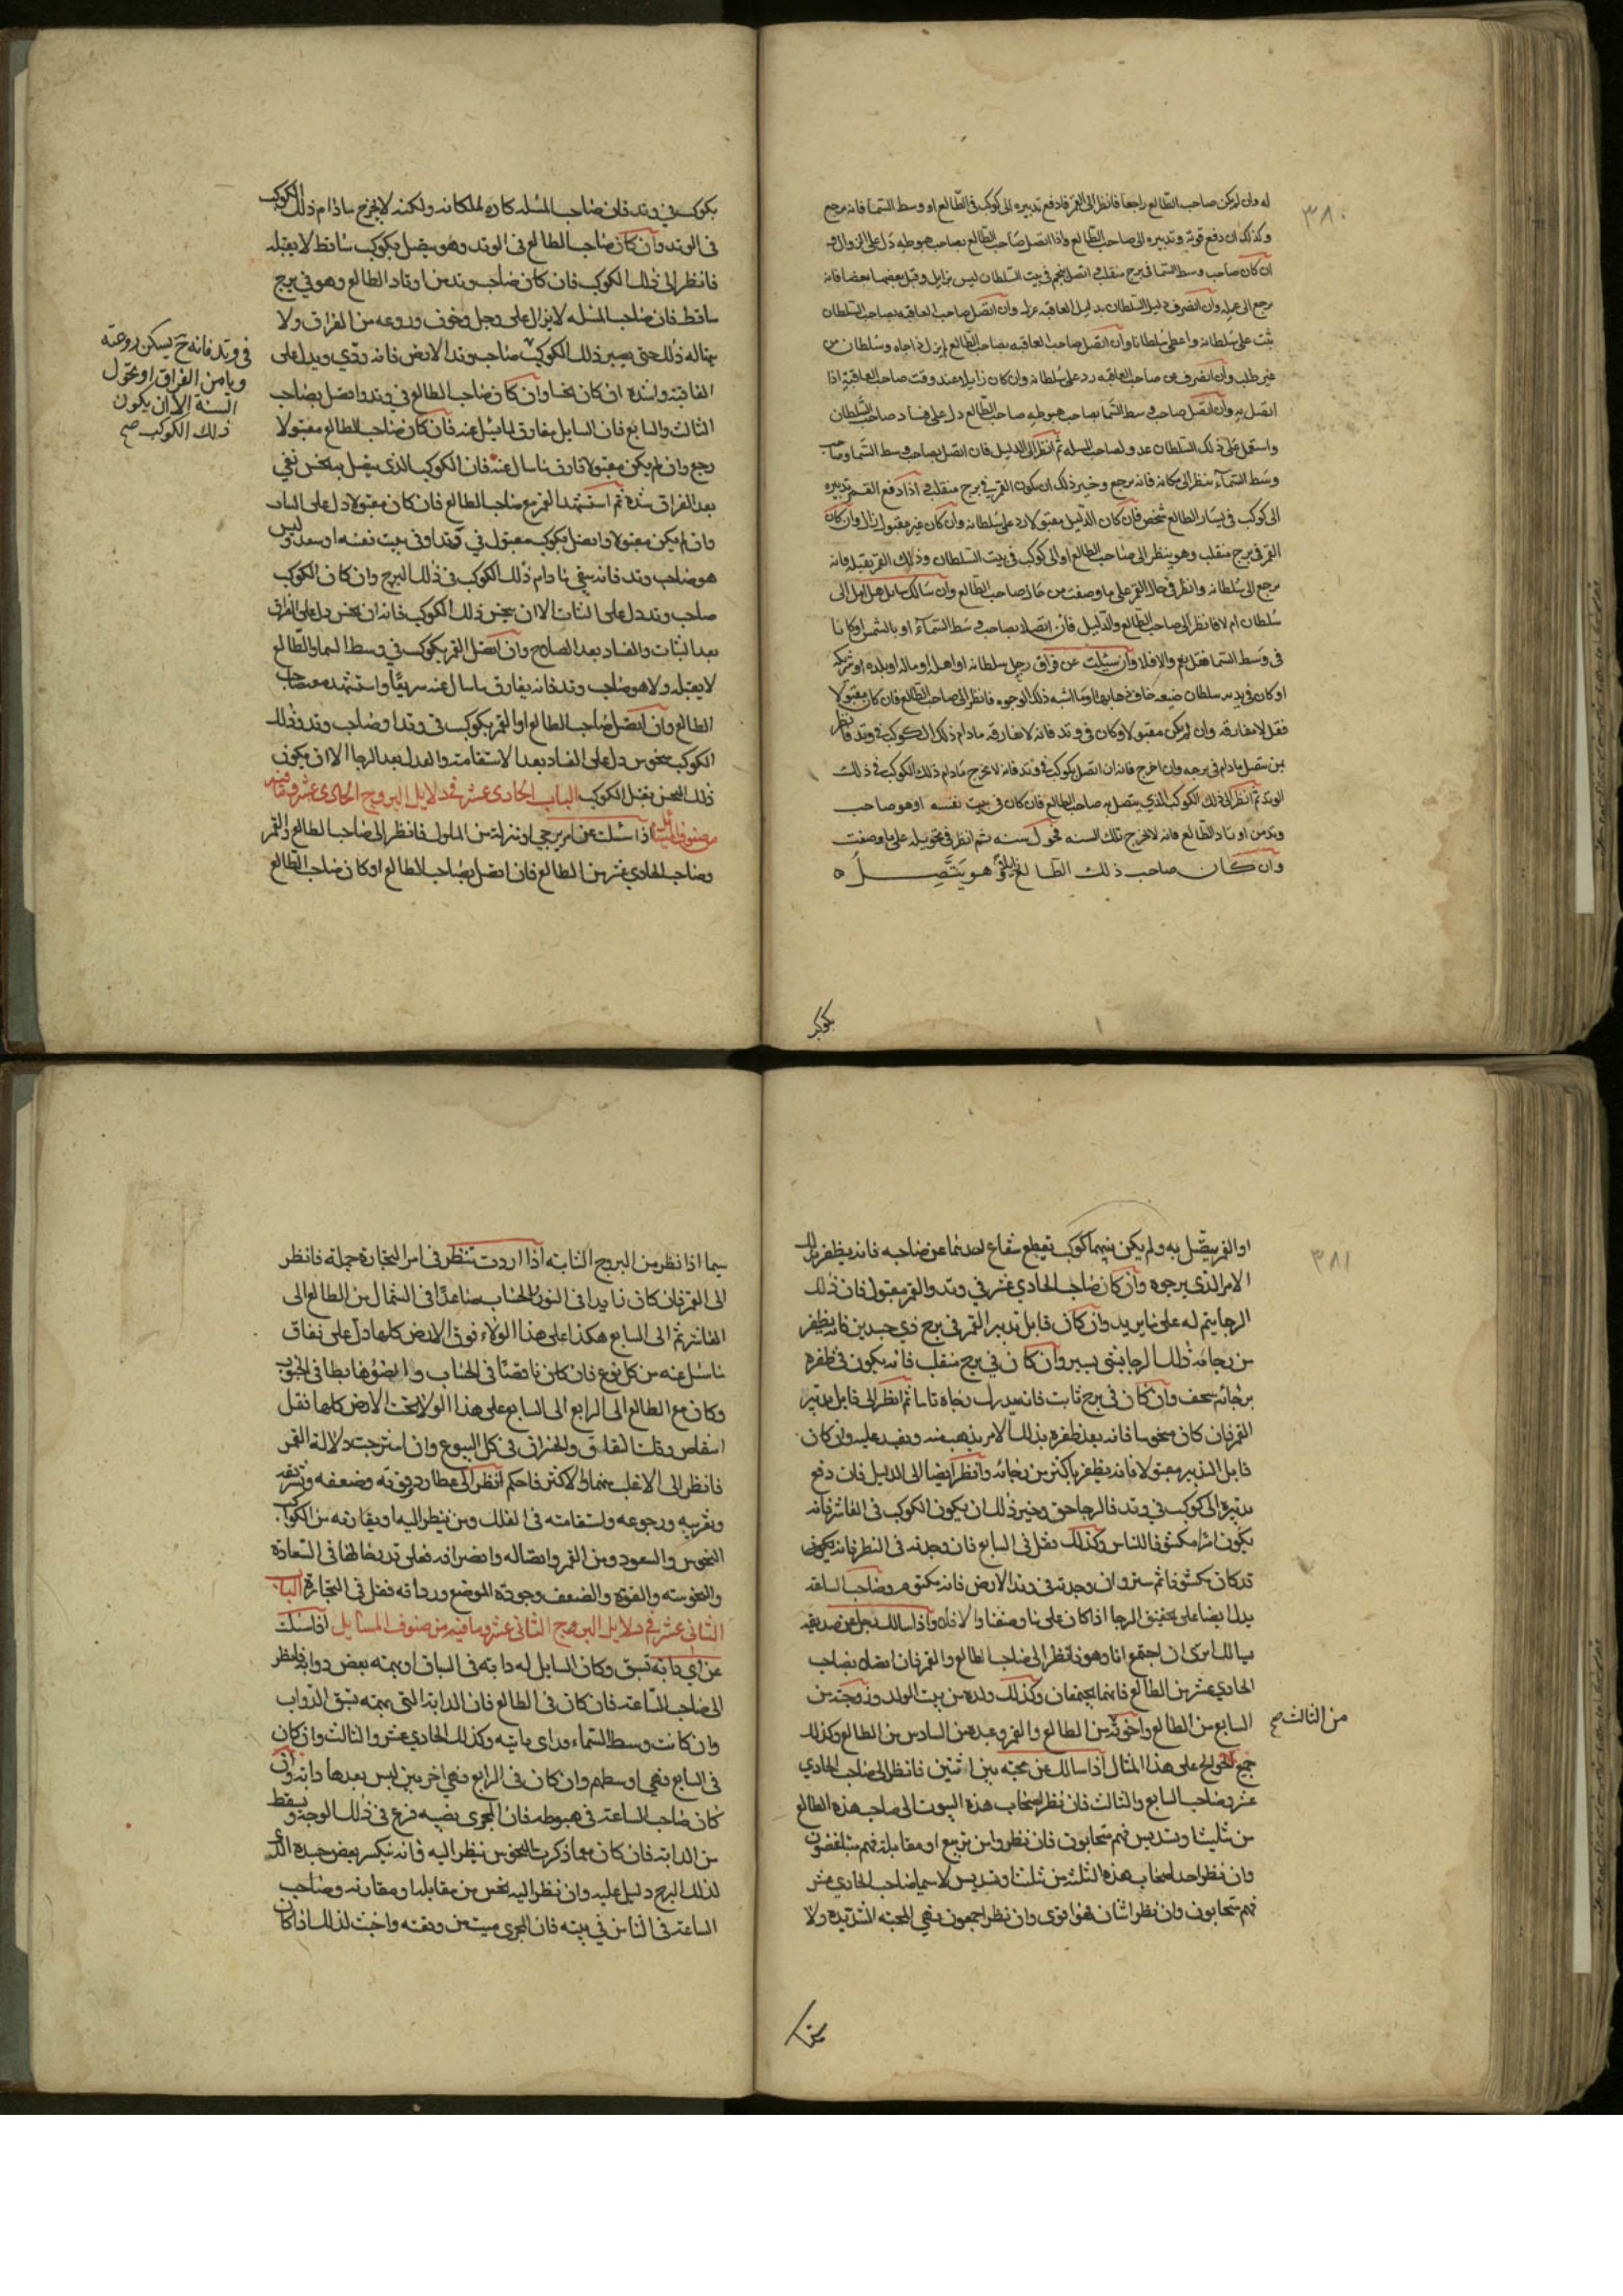 ٣٨٠
له وان لم يكن صاحب الطالع راجعا فانظر الى القمر فان دفع تدبيره الى كوكب فى الطالع او وسط السما فانه يرجع
وكذلك ان دفع قوته وتدبيره الى صاحب الطالع واذا اتصل صاحب الطالع بصاحب هبوطه دل على الزوال
ان كان صاحب وسط السما فى برج منقلب اتصل بنجم فى بيت السلطان ليس بزايل وقبل بعضهما بعضا فانه
يرجع الى عمله وان انصرف دليل السلطان بدليل العاقبه وان اتصل صاحب العاقبه بصاحب السلطان
ثبت على سلطانه واعطى سلطانا وان اتصل صاحب العاقبه بصاحب الطالع جاه وسلطان من
غير طلب وان انصرف عن صاحب العاقبه رد على سلطانه وان كان زايلا عند وقت صاحب العاقبة اذا
اتصل به وان اتصل صاحب وسط السما بصاحب هبوطه صاحب الطالع دل على فساد صاحب السلطان
واستعمل على ذلك السلطان عدو لصاحب المسله ثم انظر الى الدليل فان اتصل بصاحب وسط السما وصاحب
وسط السماء ينظر الى مكانه فانه يرجع وخير ذلك ان يكون القمر فى برج منقلب اذا دفع القمر تدبيره
الى كوكب فى يسار الطالع شخص فان كان الدليل مقبولا رد على سلطانه وان كان غير مقبول زال وان كان
القمر فى برج منقلب وهو ينظر الى صاحب الطالع او الى كوكب فى بيت السلطان وذلك القمر يقبله فانه
يرجع الى سلطانه وانظر فى حال القمر على ما وصفت من حال صاحب الطالع وان سالك سايل هل اصل الى
سلطان ام لا فانظر الى صاحب الطالع والدليل فان اتصلا بصاحب وسط السماء او بالشمس او كانا
فى وسط السما فقل نعم والا فلا وان سئلت عن فراق رجل سلطانه او اهله او ماله او بلده او شريكه
او كان فى يديه سلطان ضيعه خاف ذهابها وما اشبه ذلك الوجوه فانظر الى صاحب الطالع فان كان مقبولا
فقل لا مفارقه وان لم يكن مقبولا وكان فى وتد فانه لا يفارقه مادام ذلك الكوكب فى وتد فانظر
بمن يتصل مادام فى برجه وان خرج فانه ان اتصل بكوكب فى وتد فانه لا يخرج مادام ذلك الكوكب فى ذلك
الوتد ثم انظر الى ذلك الكوكب الذي يتصل به صاحب الطالع فان كان فى بيت نفسه او هو صاحب
وتد من اوتاد الطالع فانه لا يخرج تلك السنه سنه ثم انظر فى تحويله على ما وصفت
وان كان صاحب ذلك الطالع هو يتصل ه
بكوكب
بكوكب فى وتد فان صاحب المسله كاره لمكانه ولكنه لا يخرج مادام ذلك الكوكب
فى الوتد وان كان صاحب الطالع فى الوتد وهو يتصل بكوكب ساقط لا يقبله
فانظر الى ذلك الكوكب فان كان صاحب وتد من اوتاد الطالع وهو فى برج
ساقط فان صاحب المسله لا يزال على وجل وخوف وروعه من الفراق ولا
يناله ذلك حتى يصير ذلك الكوكب صاحب وتد الارض فانه ردي ويدل على
العاقبة واشده ان كان نحسا وان كان صاحب الطالع فى وتد واتصل بصاحب
الثالث والسابع فان السايل مفارق لما يسل عنه فان كان صاحب الطالع مقبولا
رجع وان لم يكن مقبولا فارق ما سال عنه فان الكوكب الذى يتصل به نحس نفي
بعد الفراق شده ثم استشهد القمر مع صاحب الطالع فان كان مقبولا دل على الثبات
وان لم يكن مقبولا واتصل بكوكب مقبول فى وتد او فى بيت نفسه او سعد وليس
هو صاحب وتد فانه يبقى ما دام ذلك الكوكب فى ذلك البرج وان كان الكوكب
صاحب وتد دل على الثبات الا ان ينحس ذلك الكوكب فانه ان نحس دل على الفراق
بعد الثبات والفساد بعد الصلاح وان اتصل القمر بكوكب فى وسط السما والطالع
لا يقبله ولا هو صاحب وتد فانه يفارق ما سال عنه سريعا واستشهد معه صاحب
الطالع وان اتصل صاحب الطالع او القمر بكوكب فى وتد او صاحب وتد وذلك
الكوكب منحوس دل على الفساد بعد الاستقامه والعدل بعد الرجا الا ان يكون
ذلك النحس يقبل الكوكب الباب الحادى عشر فى دلايل البروج الحادى عشر وما فيه
من صنوف المسايل اذا سئلت عن امر يرجى او منزلة من الملوك فانظر الى صاحب الطالع والقمر
وصاحب الحادي عشر من الطالع فان اتصل بصاحب الطالع او كان صاحب الطالع
فى وتد فانه ح يسكن روعته
ويامن الفراق او تحول
السنة الا ان يكون
ذلك الكوكب صح
٣٨١
او القمر يتصل به ولم يكن بينهما كوكب يقطع شعاع احدهما عن صاحبه فانه يظفر بذلك
الامر الذي يرجوه وان كان صاحب الحادي عشر في وتد والقمر مقبول فان ذلك
الرجا يتم له على ما يريد وان كان قابل تدبير القمر فى برج ذي جسدين فانه يظفر
من رجائه ذلك الرجا بشى يسير وان كان في برج منقلب فانه يكون فى ظفره
برجائه وان كان فى برج ثابت فانه يدرك رجاه تاما ثم انظر الى قابل تدبير
القمر فان كان منحوسا فانه بعد ظفره بذلك الامر يذهب منه ويفسد عليه وان كان
قابل التدبير مقبولا فانه يظفر باكثر من رجائه وانظر ايضا الى الدليل فان دفع
تدبيره الى كوكب في وتد فالرجا حق وخير ذلك ان يكون الكوكب فى العاشر فانه
يكون امرا مكشوفا للناس وكذلك فقل فى السابع فان وجدته فى النظر فانه يكون
قد كان مكشوفا ثم ستر وان وجدته فى وتد الارض فانه مكتوم وصاحب الساعه
يدل ايضا على تحقيق الرجا اذا كان على ما وصفنا والا فلا واذا سالك رجل عن صديقه
يسالك اترى ان اجتمع انا وهو فانظر الى صاحب الطالع والقمر فان اتصلا بصاحب
الحادي عشر من الطالع فانهما يجتمعان وكذلك ولده من بيت الولد وزوجته من
السابع من الطالع واخوته من الطالع والقمر وعبده من السادس من الطالع وكذلك
من الثالث صح
جميع الحوائج على هذا المثال اذا سالك عن محبه بين اثنين فانظر الى صاحب الحادي
عشر وصاحب السابع والثالث فان نظر اصحاب هذه البيوت الى صاحب هذه الطالع
من تثليث او تسديس فهم متحابون فان نظروا من تربيع او مقابلة فهم متباغضون
وان نظر احد اصحاب هذه الثلثه من تثليث او تسديس لا سيما صاحب الحادي عشر
فهم متحابون وان نظر اثنان فهو اقوى وان نظر اجمعون فهي المحبه الشديده ولا
سيما
سيما اذا نظر من البروج الثابته اذا اردت تنظر فى امر التجارة جملة فانظر
الى القمر فان كان زايدا فى النور والحساب صاعدا فى الشمال من الطالع الى
العاشر ثم الى السابع هكذا على هذا الولاء فوق الارض كلها دل على نفاق
ما سئل عنه من كل نوع فان كان ناقصا فى الحساب والضوء هابطا فى الجنوب
وكان مع الطالع الى الرابع الى السابع على هذا الولا تحت الارض كلها فقل
انتقاص وقلت النفاق والخسران فى كل البيوع وان امتزجت دلالة القمر
فانظر الى الاغلب منهما والاكثر فاحكم انظر الى عطارد وقوته وضعفه وتشريقه
وتغريبه ورجوعه واستقامته فى الفلك ومن ينظر اليه او يقارنه من الكواكب
النحوس والسعود ومن القمر واتصاله وانصرافه فعلى قدر حالها فى السعادة
والنحوسه والقوة والضعف وجودة الموضع ورداته فقل فى التجارة الباب
الثانى عشر فى دلايل البروج الثانى عشر وما فيه من صنوف المسايل اذا سئلت
عن اي دابة تسبق وكان السايل له دابه فى السباق او يهمه بعض دوابه فانظر
الى صاحب الساعه فان كان فى الطالع فان الدابة التى تهمه تسبق الدواب
وان كانت وسط السماء وكذلك الحادي عشر والثالث وان كان
فى السابع فهي اوسطهم وان كان فى الرابع فهي اخرهن ليس بعدها دابه وان
كان صاحب الساعه فى هبوطه فان المجرى يصيبه فزع فى ذلك الوجه ويسقط
من الدابه فان كان مما ذكرت النحوس ينظر اليه فانه ينكسر بعض جسده الذي
لذلك البرج دليل عليه وان نظر اليه نحس من مقابله او مقارنه وصاحب
الساعه فى الثامن في بيته فان المجرى ميت من وقته واخبث لذلك اذا كان